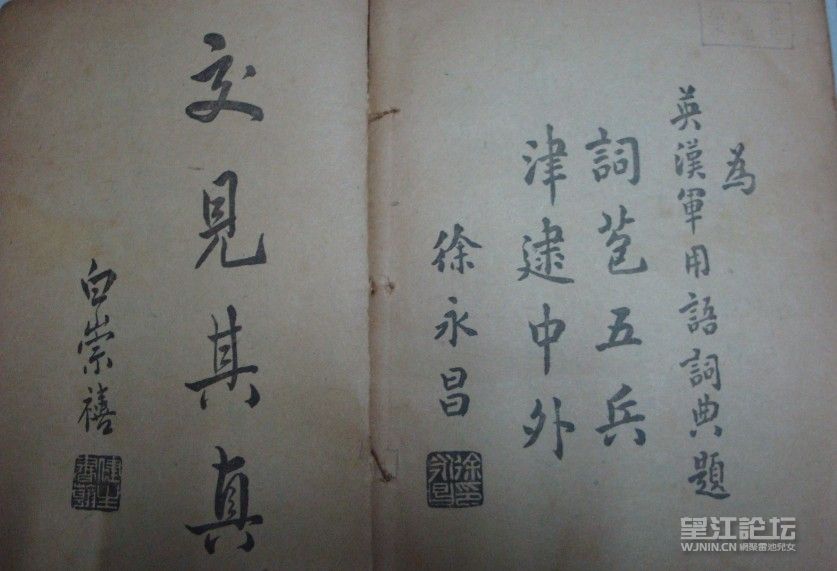 為
英漢軍用語詞典題
詞苞五兵
津逮中外
徐永昌
交見其真
白崇禧
望江論坛
WJNIN.CN 網聚雷池兒女